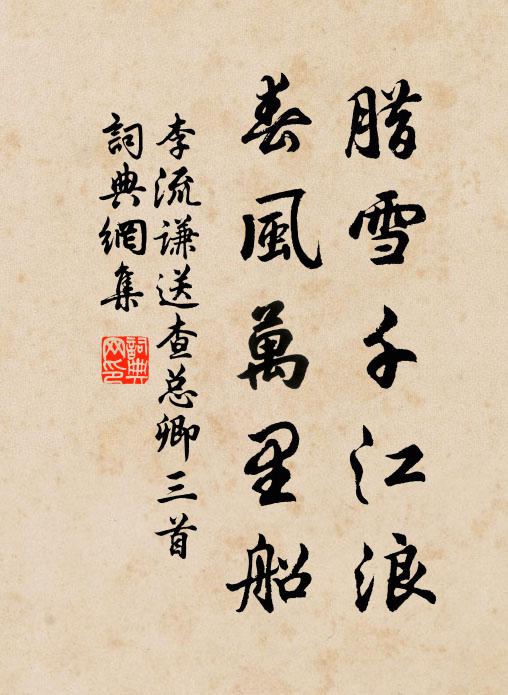 腊雪千江浪
春風萬里船
李流谦送查总卿三首
詞典網集
詞典网印